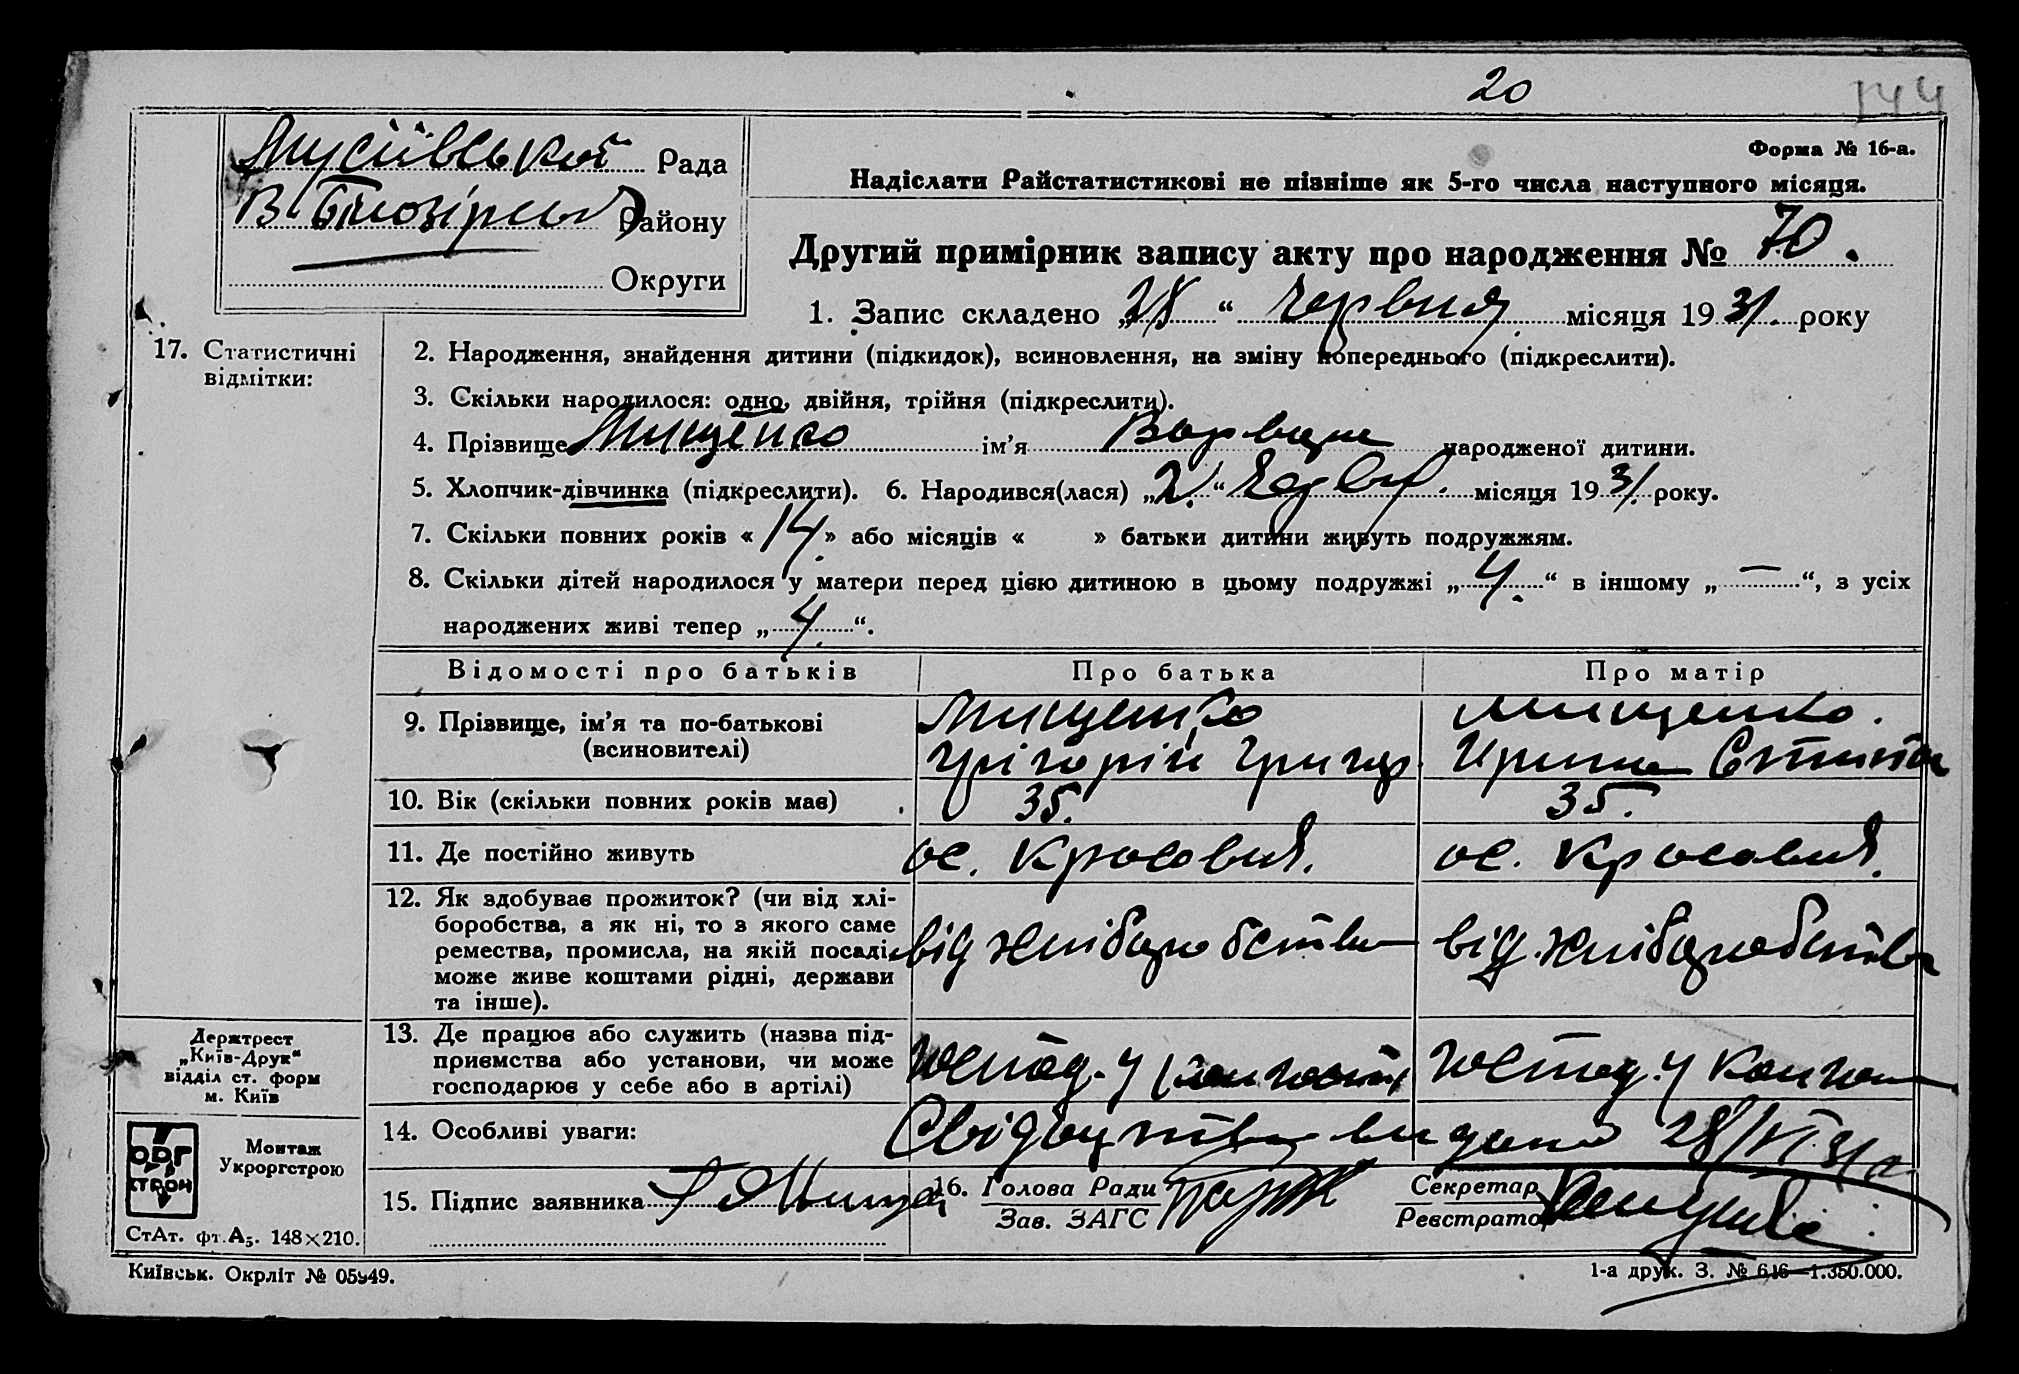 20
144
Мусіївської Рада
Району
Округи
Форма № 16-а.
Надіслати Райстатистикові не пізніше як 5-го числа наступного місяця.
Другий примірник запису акту про народження № 70.
1. Запис складено „28“ червня місяця 1931 року
17. Статистичні
відмітки:
2. Народження, знайдення дитини (підкидок), всиновлення, на зміну попереднього (підкреслити).
3. Скільки народилося: одно, двійня, трійня (підкреслити).
4. Прізвище Мищенко ім’я Варвара народженої дитини.
5. Хлопчик-дівчинка (підкреслити). 6. Народився(лася) „2“ черв. місяця 1931. року.
7. Скільки повних років «14» або місяців « » батьки дитини живуть подружжям.
8. Скільки дітей народилося у матери перед цією дитиною в цьому подружжі „4.“ в іншому „—“, з усіх
народжених живі тепер „4.“.
Відомості про батьків Про батька Про матір
9. Прізвище, ім’я та по-батькові
(всиновителі)
Мищенко
Григорій Григор.
Мищенко.
Ирина
10. Вік (скільки повних років має) 35. 35.
11. Де постійно живуть ос. Красовня. ос. Красовня.
12. Як здобуває прожиток? (чи від хлі-
боробства, а як ні, то з якого саме
ремества, промисла, на якій посаді,
може живе коштами рідні, держави
та інше).
від хліборобства від хліборобства
13. Де працює або служить (назва під-
приємства або установи, чи може
господарює у себе або в артілі)
господ. у господ. у
14. Особливі уваги: Свідоцтво видано 28/VI 31 р.
15. Підпис заявника
16. Голова Ради
Зав. ЗАГС
Секретар
Реєстратор
Держтрест
„Київ-Друк“
відділ ст. форм
м. Київ
ОРГ
СТРОЙ
Монтаж
Укроргстрою
СтАт. фт. А5. 148×210.
Київськ. Окрліт № 05949.
1-а друк. З. № 616—1.350.000.